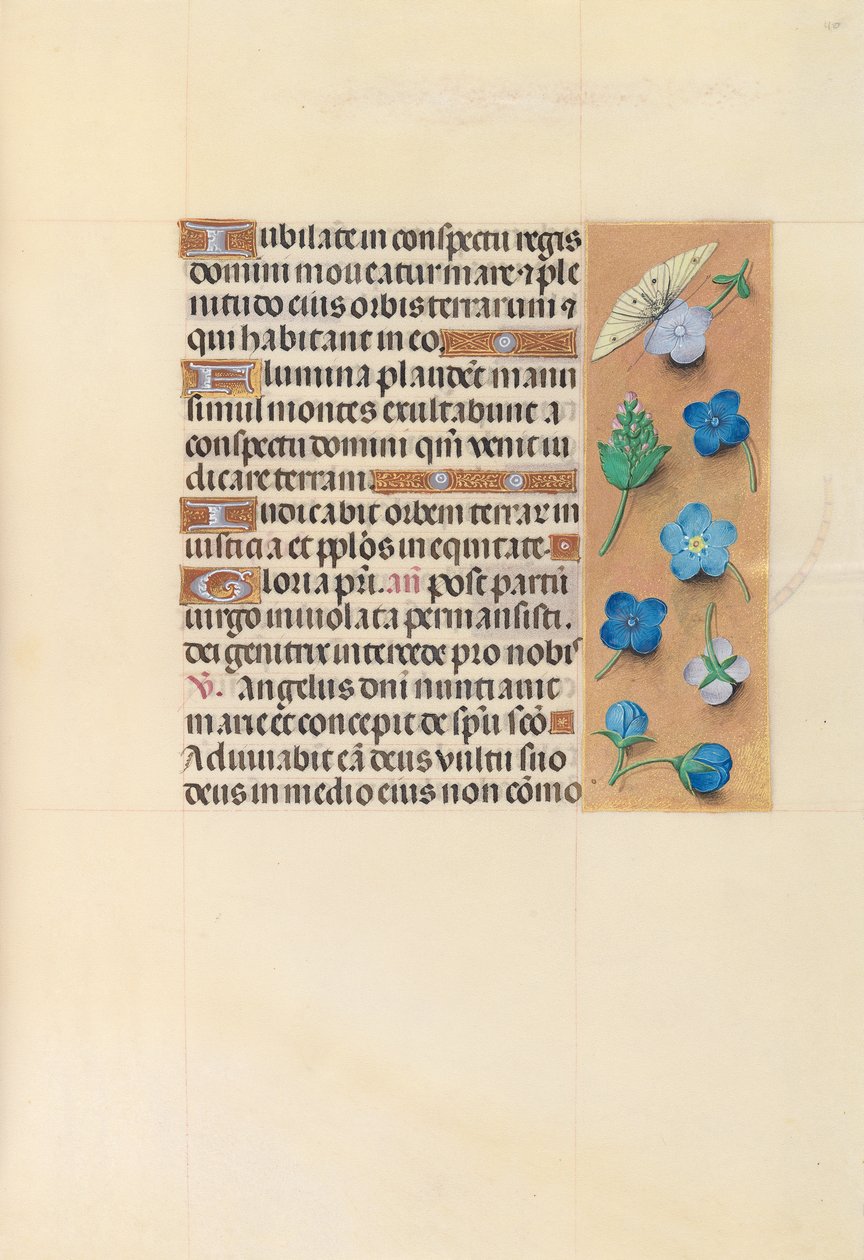 40
Iubilate in conspectu regis
domini moueatur mare ⁊ ple
nitudo eius orbis terrarum ⁊
qui habitant in eo.
Flumina plaudēt manu
simul montes exultabunt a
conspectu domini qm̄ venit iu
dicare terram.
Iudicabit orbem terraꝝ in
iusticia et pplōs in equitate.
Gloria pr̄i. an̄ post partū
uirgo inuiolata permansisti.
dei genitrix intercede pro nobis
V̄. Angelus dn̄i nunciauit
marie et concepit de sp̄u scō
Adiuuabit eā deus vultu suo
deus in medio eius non cōmo